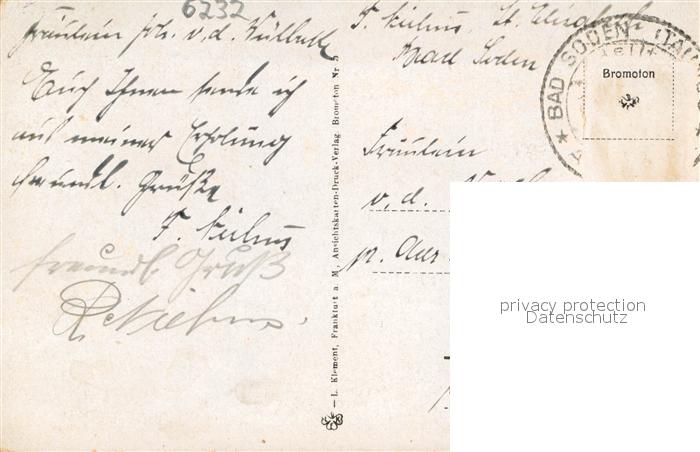 6232
Fräulein v. d.
Auch Ihnen sende ich
aus meiner Erholung
freundl. Grüße
F. Niehus
freundl. Gruß
R. Niehus.
L. Klement, Frankfurt a. M. Ansichtskarten-Druck-Verlag Bromoton Nr. 5
F. Niehus, St. Elisabeth
Bad Soden
BAD SODEN (TAUNUS
Bromoton
Fräulein
v. d.
p.
privacy protection
Datenschutz